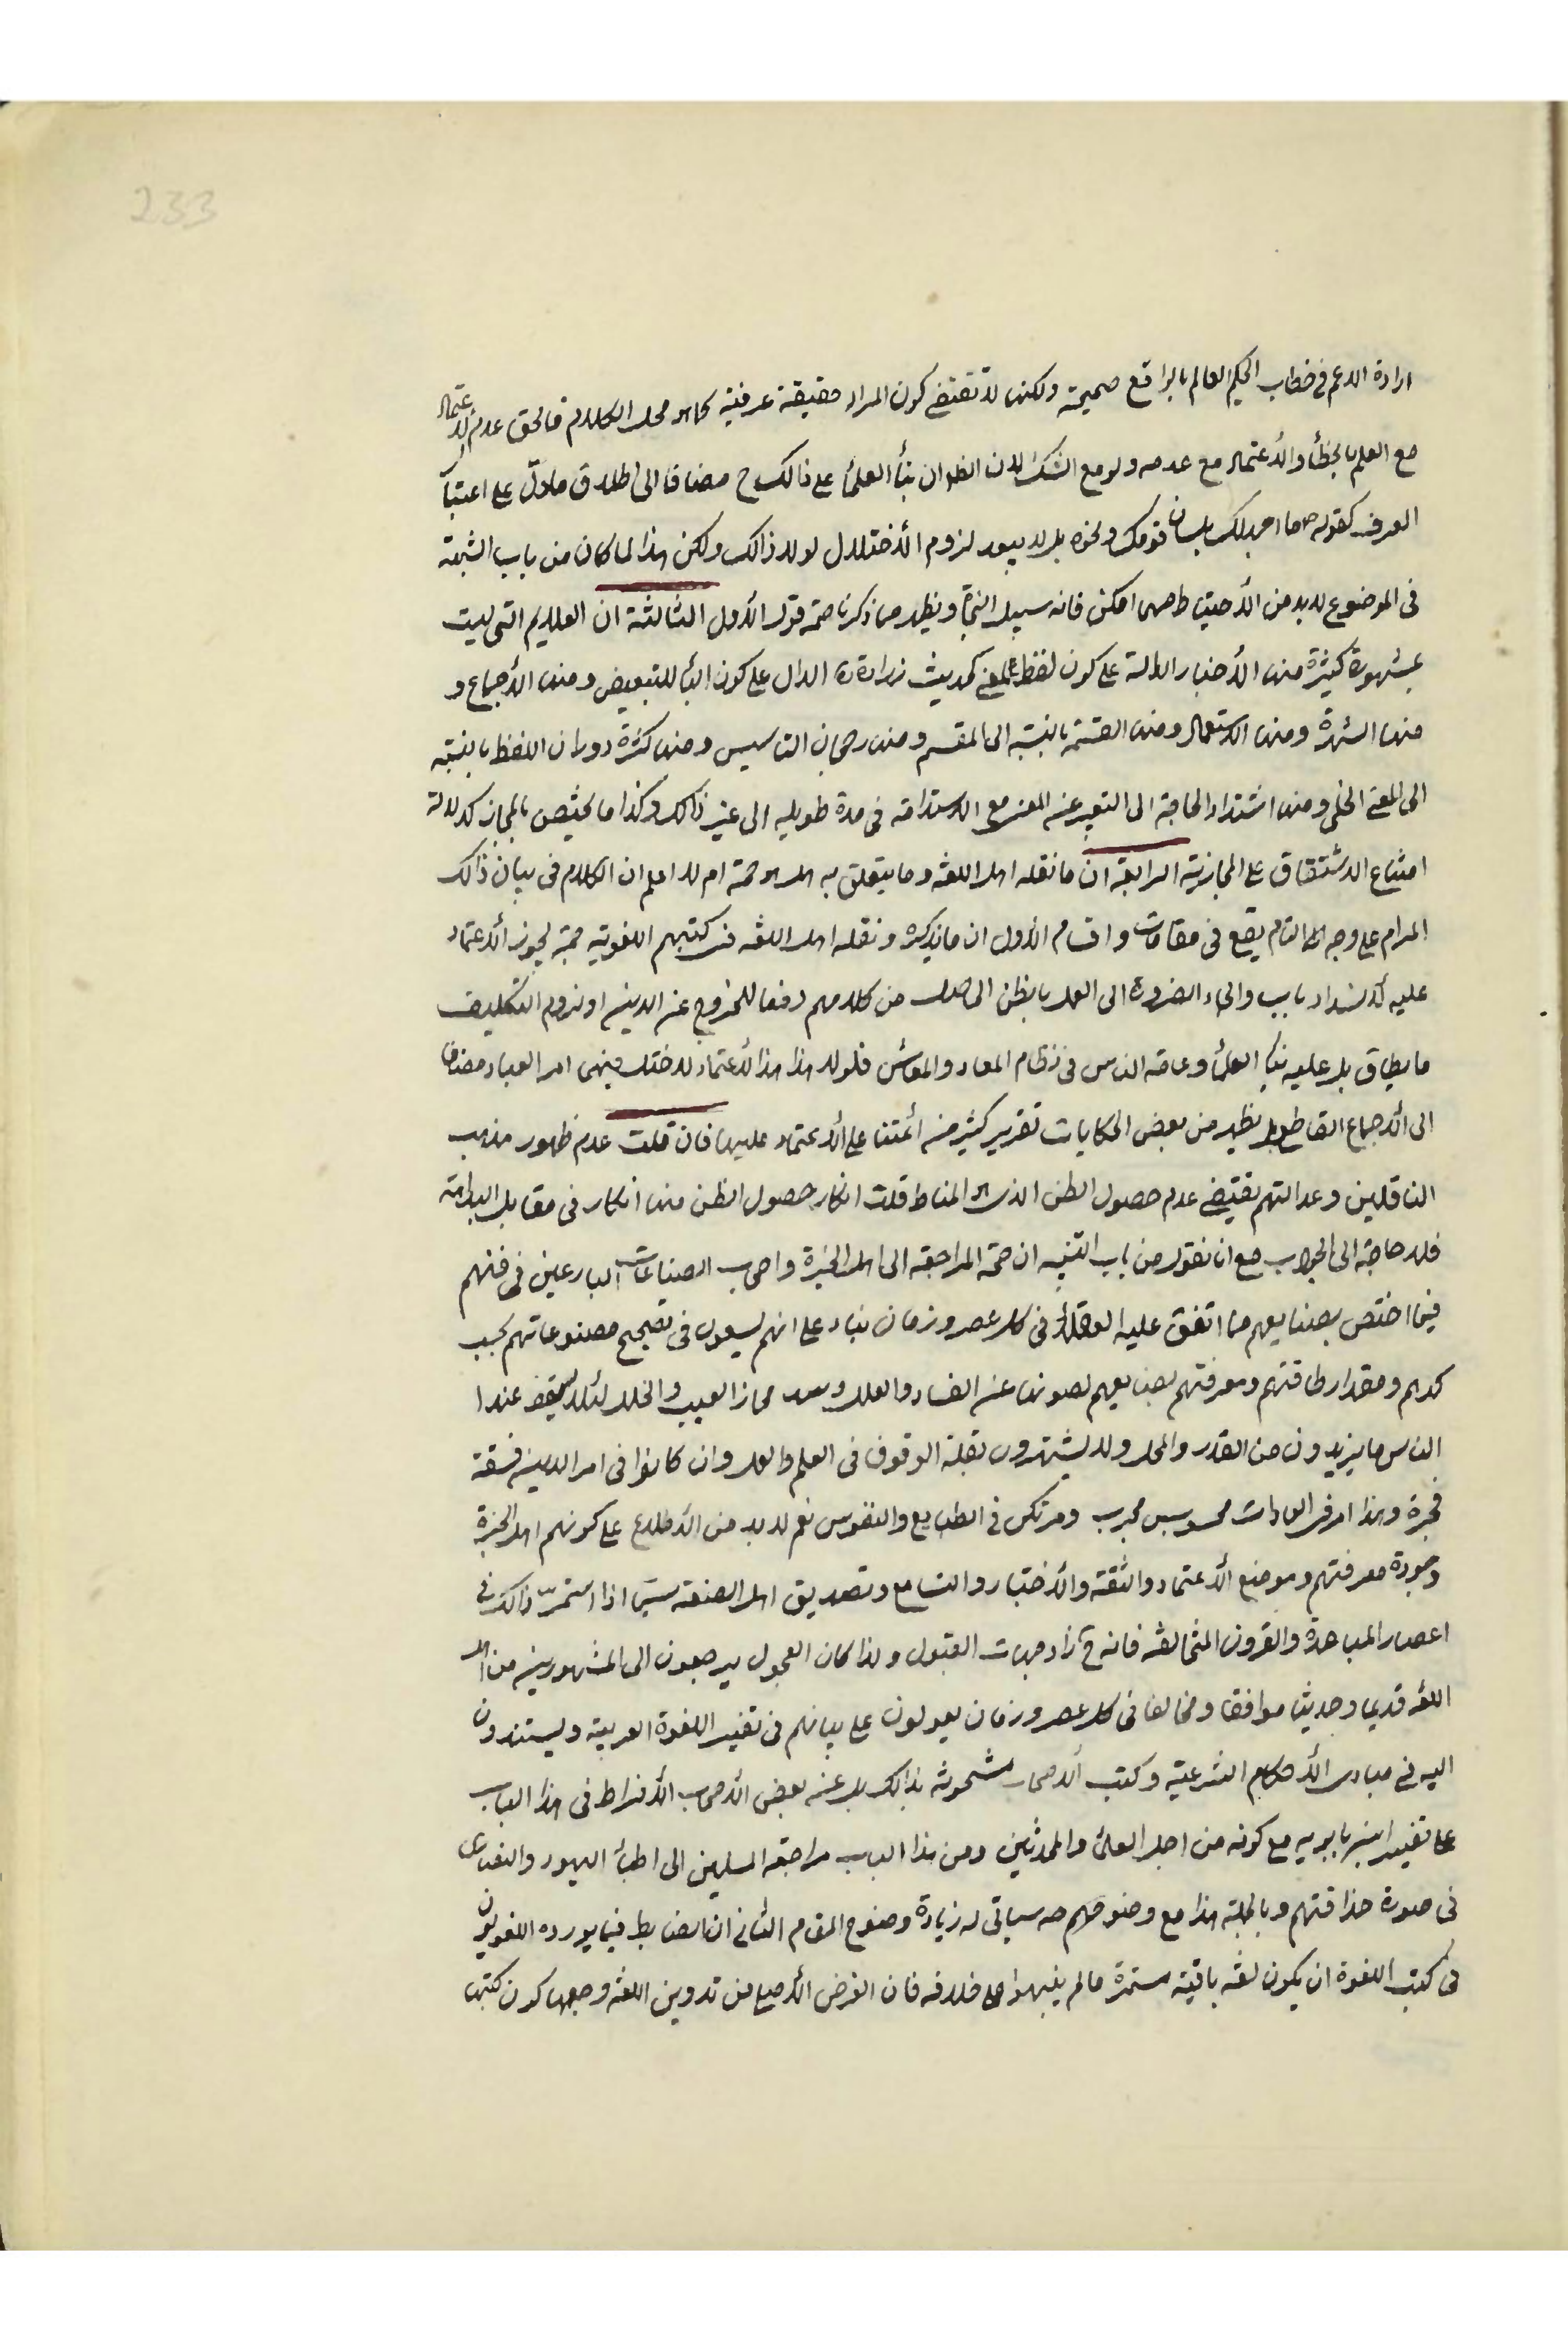 233
ارادة الاعم فى خطاب الحكيم العالم بالواقع صحيحة ولكنها لا تقتضى كون المراد حقيقة عرفية كما هو محل الكلام فالحق عدم الاعتماد
مع العلم بالخطأ والأعتماد مع عدمه ولو مع الشك لان الظ ان بنأ العلمأ على ذالك ح مضافا الى اطلاق مادلّ على اعتبأ
العرف كقوله ص ما بلسان قومك ونحوه بل لا يبعد لزوم الأختلال لولا ذالك ولكن هذا لما كان من باب الشبهة
فى الموضوع لابد من الأحتياط مهما امكن فانه سبيل النجاة ويظهر مما ذكرنا صحة قول الأول الثالثة ان العلايم التى ليست
بمشهورة كثيرة منها الأخبار الدالة على كون لفظ لمعنى كحديث زرارة الدال على كون البأ للتبعيض ومنها الأجماع و
منها الشهرة ومنها الاستعمال ومنها القسمة بالنسبة الى المقسم ومنها رجحان التاسيس ومنها كثرة دوران اللفظ بالنسبة
الى المعنى الخفى ومنها اشتداد الحاجة الى التعبير عن المعنى مع الاستدامة فى مدة طويله الى غير ذالك وكذا ما يختص بالمجاز كدلالة
امتناع الاشتقاق على المجازية الرابعة ان ما نقله اهل اللغه وما يتعلق به هل هو حجة ام لا اعلم ان الكلام فى بيان ذالك
المرام على وجه التام يقع فى مقامات واقسام الأول ان ما يذكره ونقله اهل اللغه فى كتبهم اللغويه حجة يجوز الأعتماد
عليه لأنسداد باب والجاء الضرورة الى العمل بالظن الحاصل من كلامهم دفعا للخروج عن الدين او لزوم التكليف
ما يطاق بل عليه بنأ العلمأ وعامة الناس فى نظام المعاد والمعاش فلولا هذا هذا الأعتماد لاختل منهى امر العباد مضافا
الى الأجماع القاطع بل يظهر من بعض الحكايات تقرير كثير من أئمتنا على الأعتماد عليها فان قلت عدم ظهور مذهب
الناقلين وعدالتهم يقتضى عدم حصول الظن الذى هو المناط قلت انكار حصول الظن منها انكار فى مقابل البداهة
فلا حاجة الى الجواب مع انا نقول من باب التنبيه ان صحة المراجعة الى اهل الخبرة واصحاب الصناعات البارعين فى فنهم
فيما اختص بصنايعهم مما اتفق عليه العقلأ فى كل عصر وزمان بناء على انهم يسعون فى تصحيح مصنوعاتهم بحسب
كدهم ومقدار طاقتهم ومعرفتهم بصنايعهم لصونها عن الفساد والعلل وسد مجاز العيب والخلل لئلا يسقط عند ا
الناس ما يزيدون من القدر والمحل ولا يشتهرون بقلة الوقوف فى العلم والعمل وان كانوا فى امر الدين فسقة
فجرة وهذا امر فى العادات محسوس مجرب ومرتكز فى الطبايع والنفوس نعم لابد من الأطلاع على كونهم اهل الخبرة
وجودة معرفتهم وموضع الأعتماد والثقة والأختبار والتسامع وتصديق اهل الصنعة سيما اذا استمرّ ذالك فى
اعصار المباعدة والقرون المتخالفه فانه ح زاد جهات القبول ولذا كان الفحول يرجعون الى المشهورين من اهل
اللغه قديما وحديثا موافقا ومخالفا فى كل عصر وزمان يعولون على بيانهم فى تفسير اللغوة العربية ويستندون
اليه فى مبادى الأحكام الشرعية وكتب الأصحاب مشحونة بذالك بل عن بعض الأصحاب الأفراط فى هذا الباب
على تفسير ابن بابويه مع كونه من اجل العلمأ والمحدثين ومن هذا الباب مراجعة المسلمين الى اطبأ اليهود والنصارى
فى صورة حذاقتهم وبالجملة هذا مع وضوحهم سياتى له زيادة وضوح المقام الثانى ان الضابط فيما يورده اللغويون
فى كتب اللغوة ان يكون لغه باقية مستمرة مالم ينبهوا على خلافه فان الغرض الأصيل من تدوين اللغه وجعلها كون كتبها